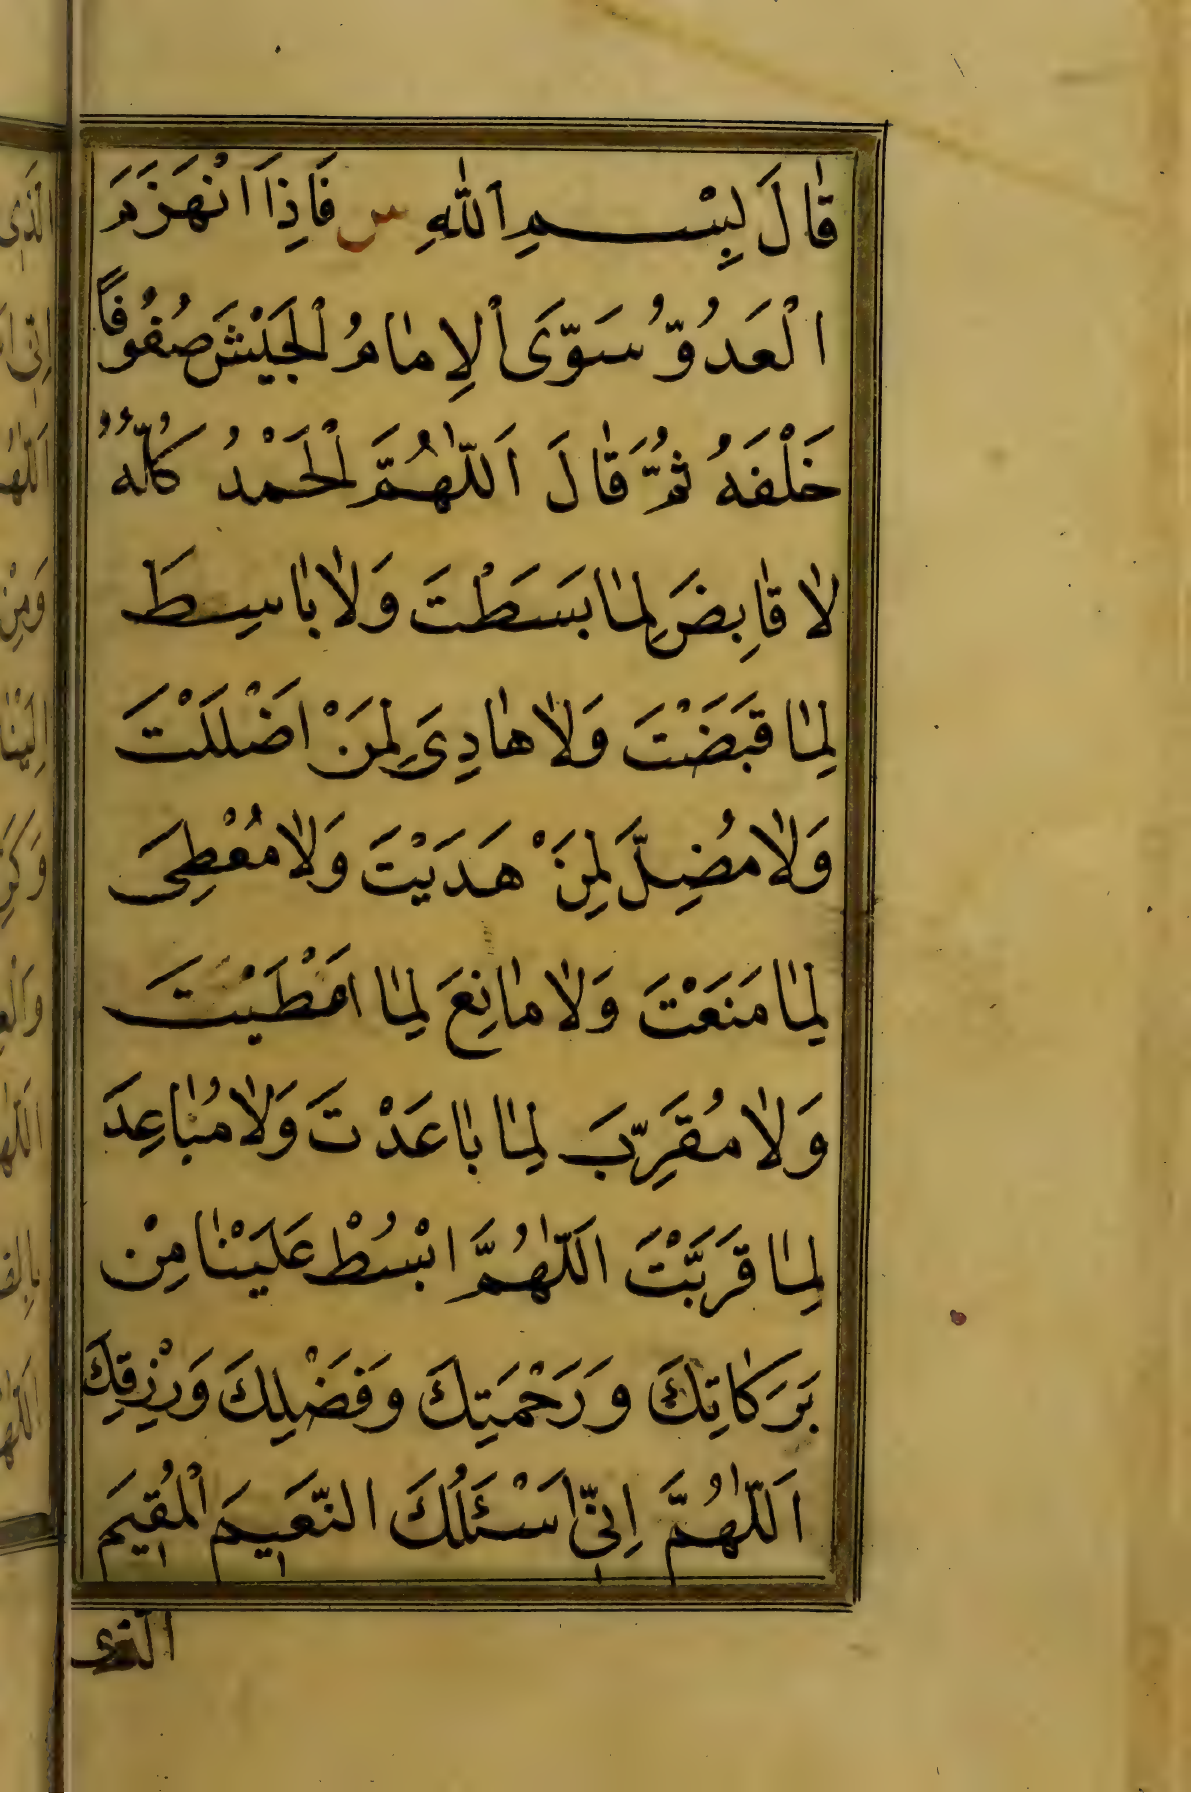 قَالَ بِسْمِ اللّٰهِ س فَاِذَا انْهَزَمَ
الْعَدُوُّ سَوَّى الْاِمَامُ الْجَيْشَ صُفُوفًا
خَلْفَهُ ثُمَّ قَالَ اَللّٰهُمَّ لَكَ الْحَمْدُ كُلُّهُ
لَا قَابِضَ لِمَا بَسَطْتَ وَلَا بَاسِطَ
لِمَا قَبَضْتَ وَلَا هَادِيَ لِمَنْ اَضْلَلْتَ
وَلَا مُضِلَّ لِمَنْ هَدَيْتَ وَلَا مُعْطِيَ
لِمَا مَنَعْتَ وَلَا مَانِعَ لِمَا اَعْطَيْتَ
وَلَا مُقَرِّبَ لِمَا بَاعَدْتَ وَلَا مُبَاعِدَ
لِمَا قَرَّبْتَ اَللّٰهُمَّ ابْسُطْ عَلَيْنَا مِنْ
بَرَكَاتِكَ وَرَحْمَتِكَ وَفَضْلِكَ وَرِزْقِكَ
اَللّٰهُمَّ اِنِّي اَسْئَلُكَ النَّعِيمَ الْمُقِيمَ
الَّذِى